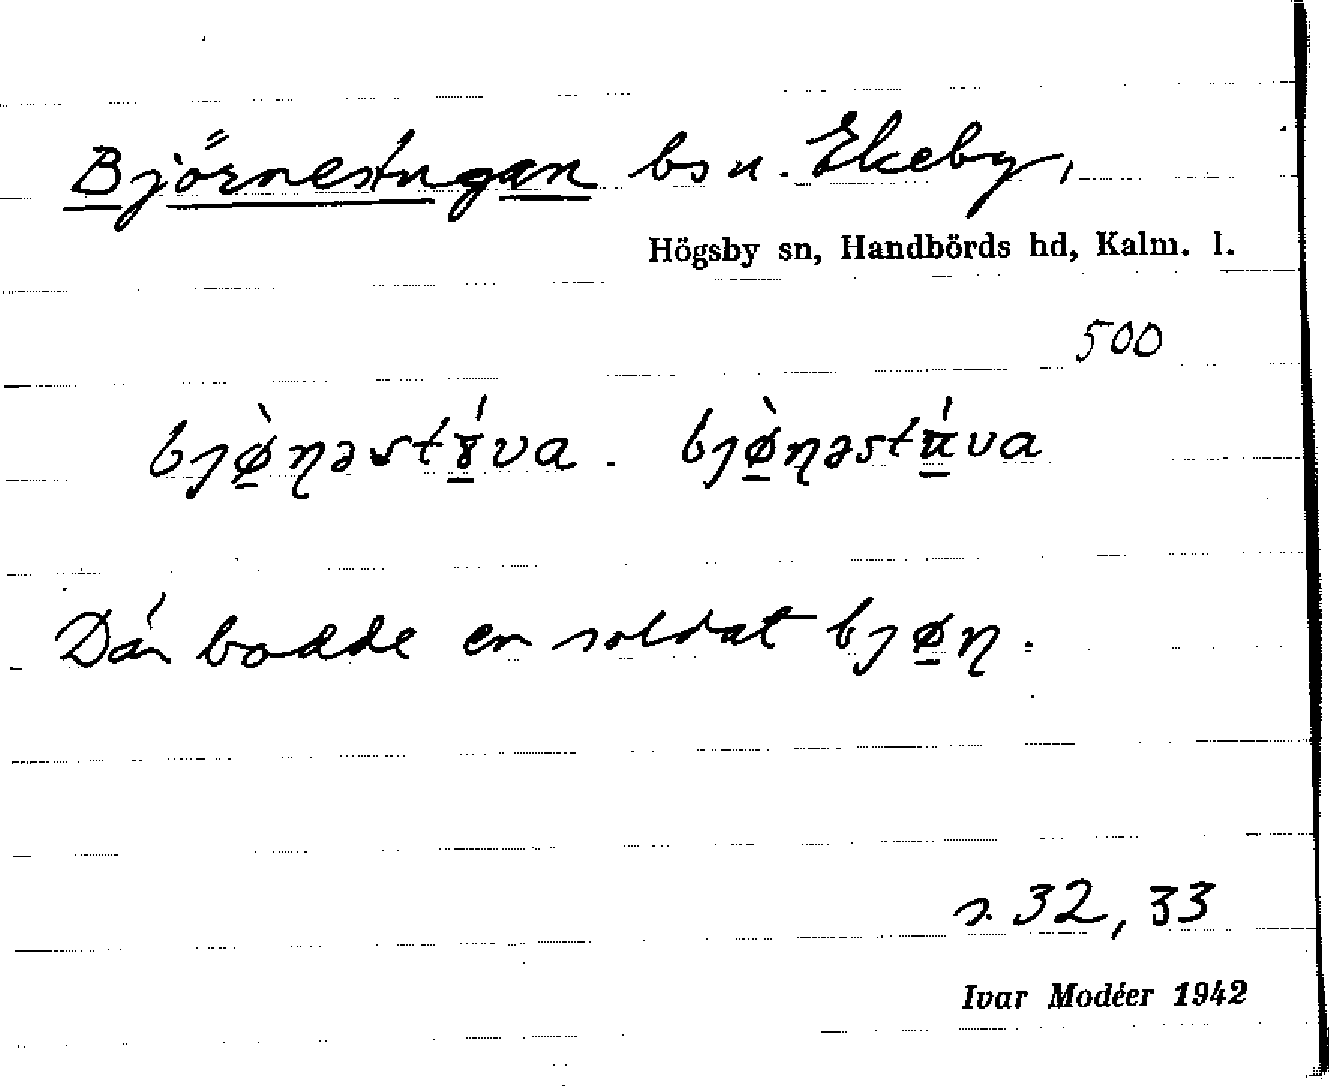 Björnestugan bs u. Ekeby,
Högsby sn, Handbörds hd, Kalm. l.
500
bjø̠̀ɳəstɤ̠́va. bjø̠̀ɳəstú̠va
Där bodde en soldat bjø̠ɳ.
s. 32, 33
Ivar Modéer 1942